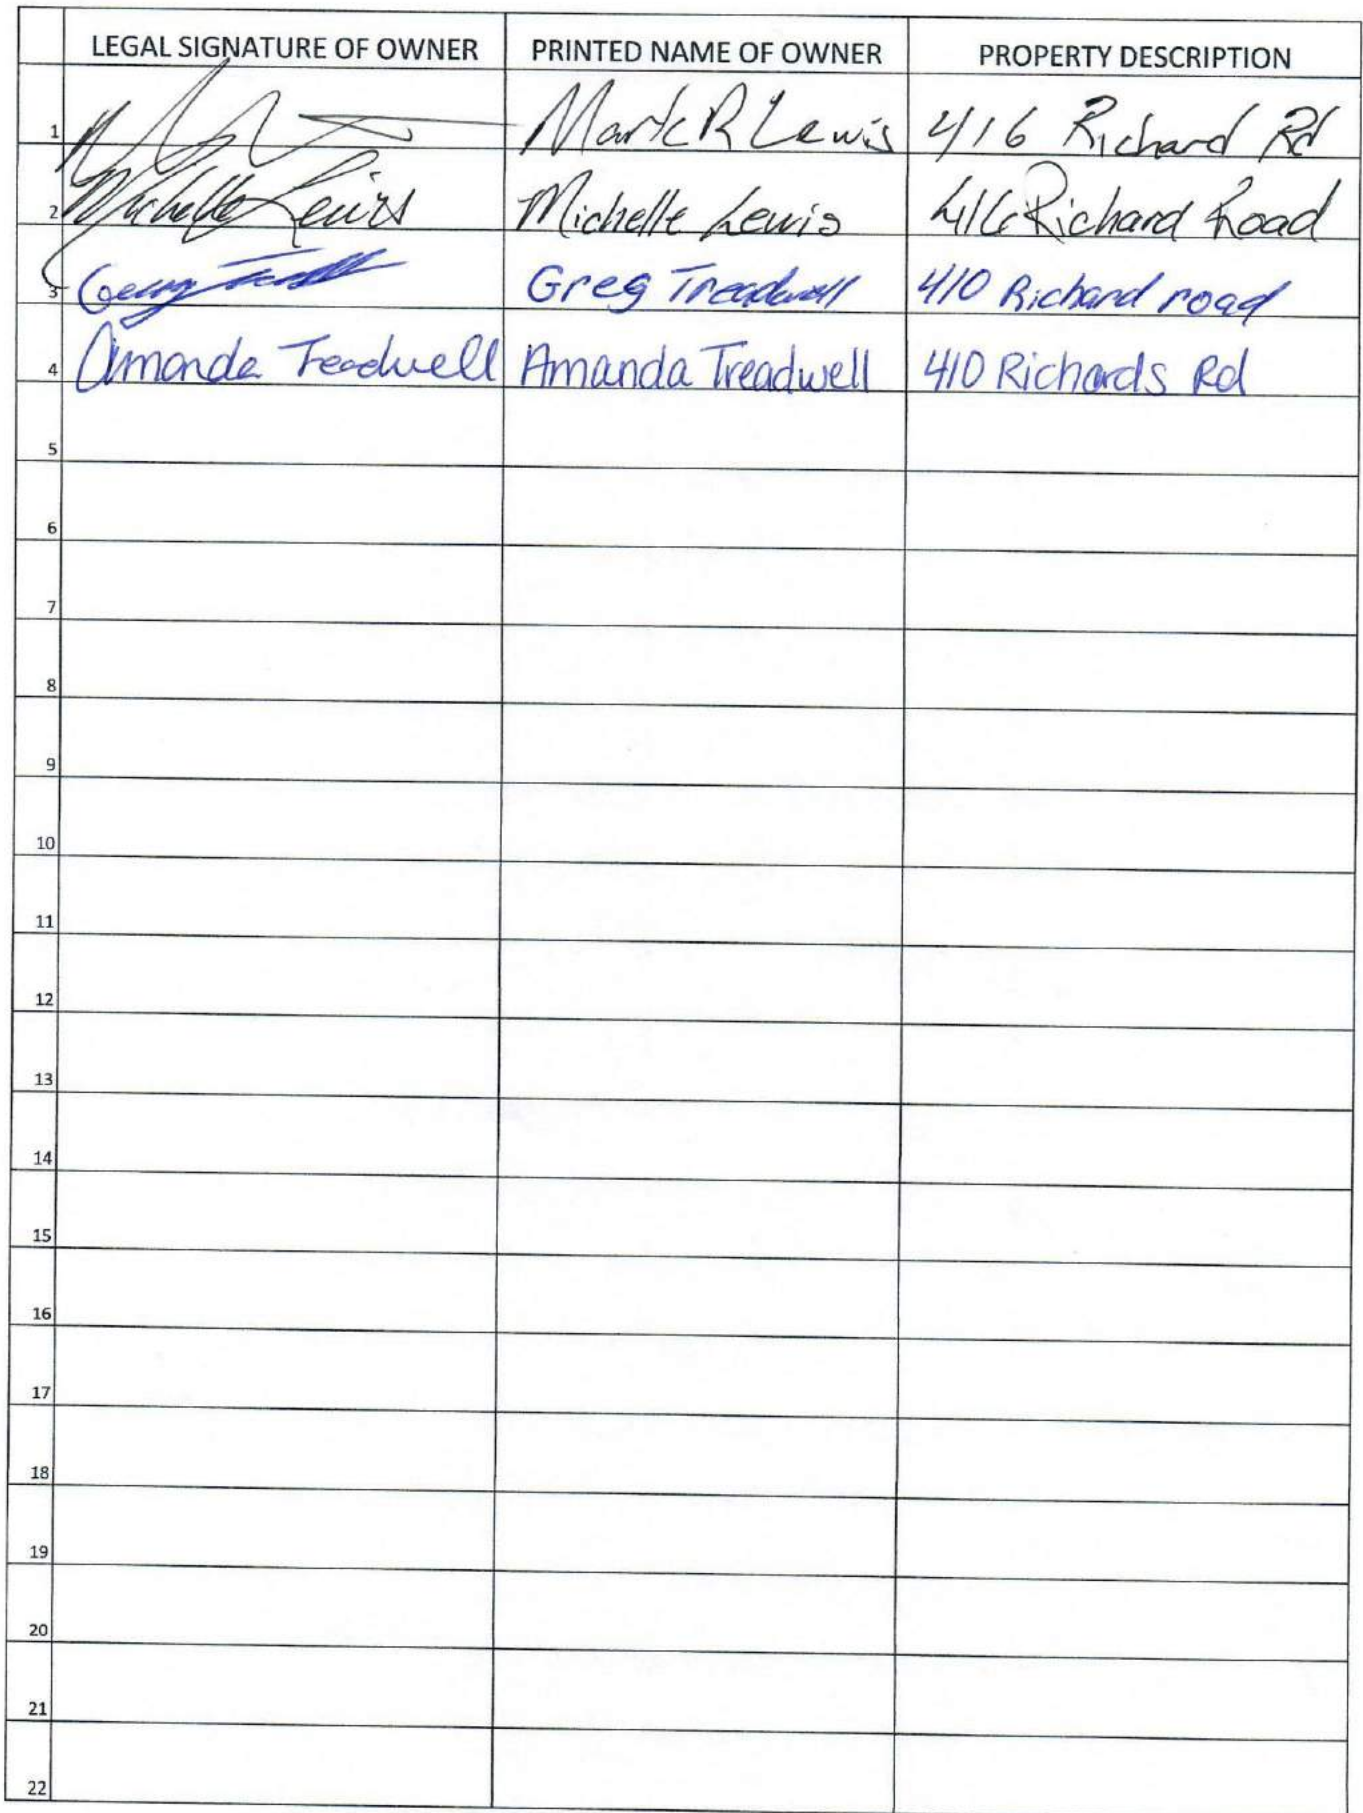 LEGAL SIGNATURE OF OWNER PRINTED NAME OF OWNER PROPERTY DESCRIPTION
1 Mark R Lewis 416 Richard Rd
2 Michelle Lewis Michelle Lewis 416 Richard Road
3 Greg Treadwell 410 Richard road
4 Amanda Treadwell Amanda Treadwell 410 Richards Rd
5
6
7
8
9
10
11
12
13
14
15
16
17
18
19
20
21
22